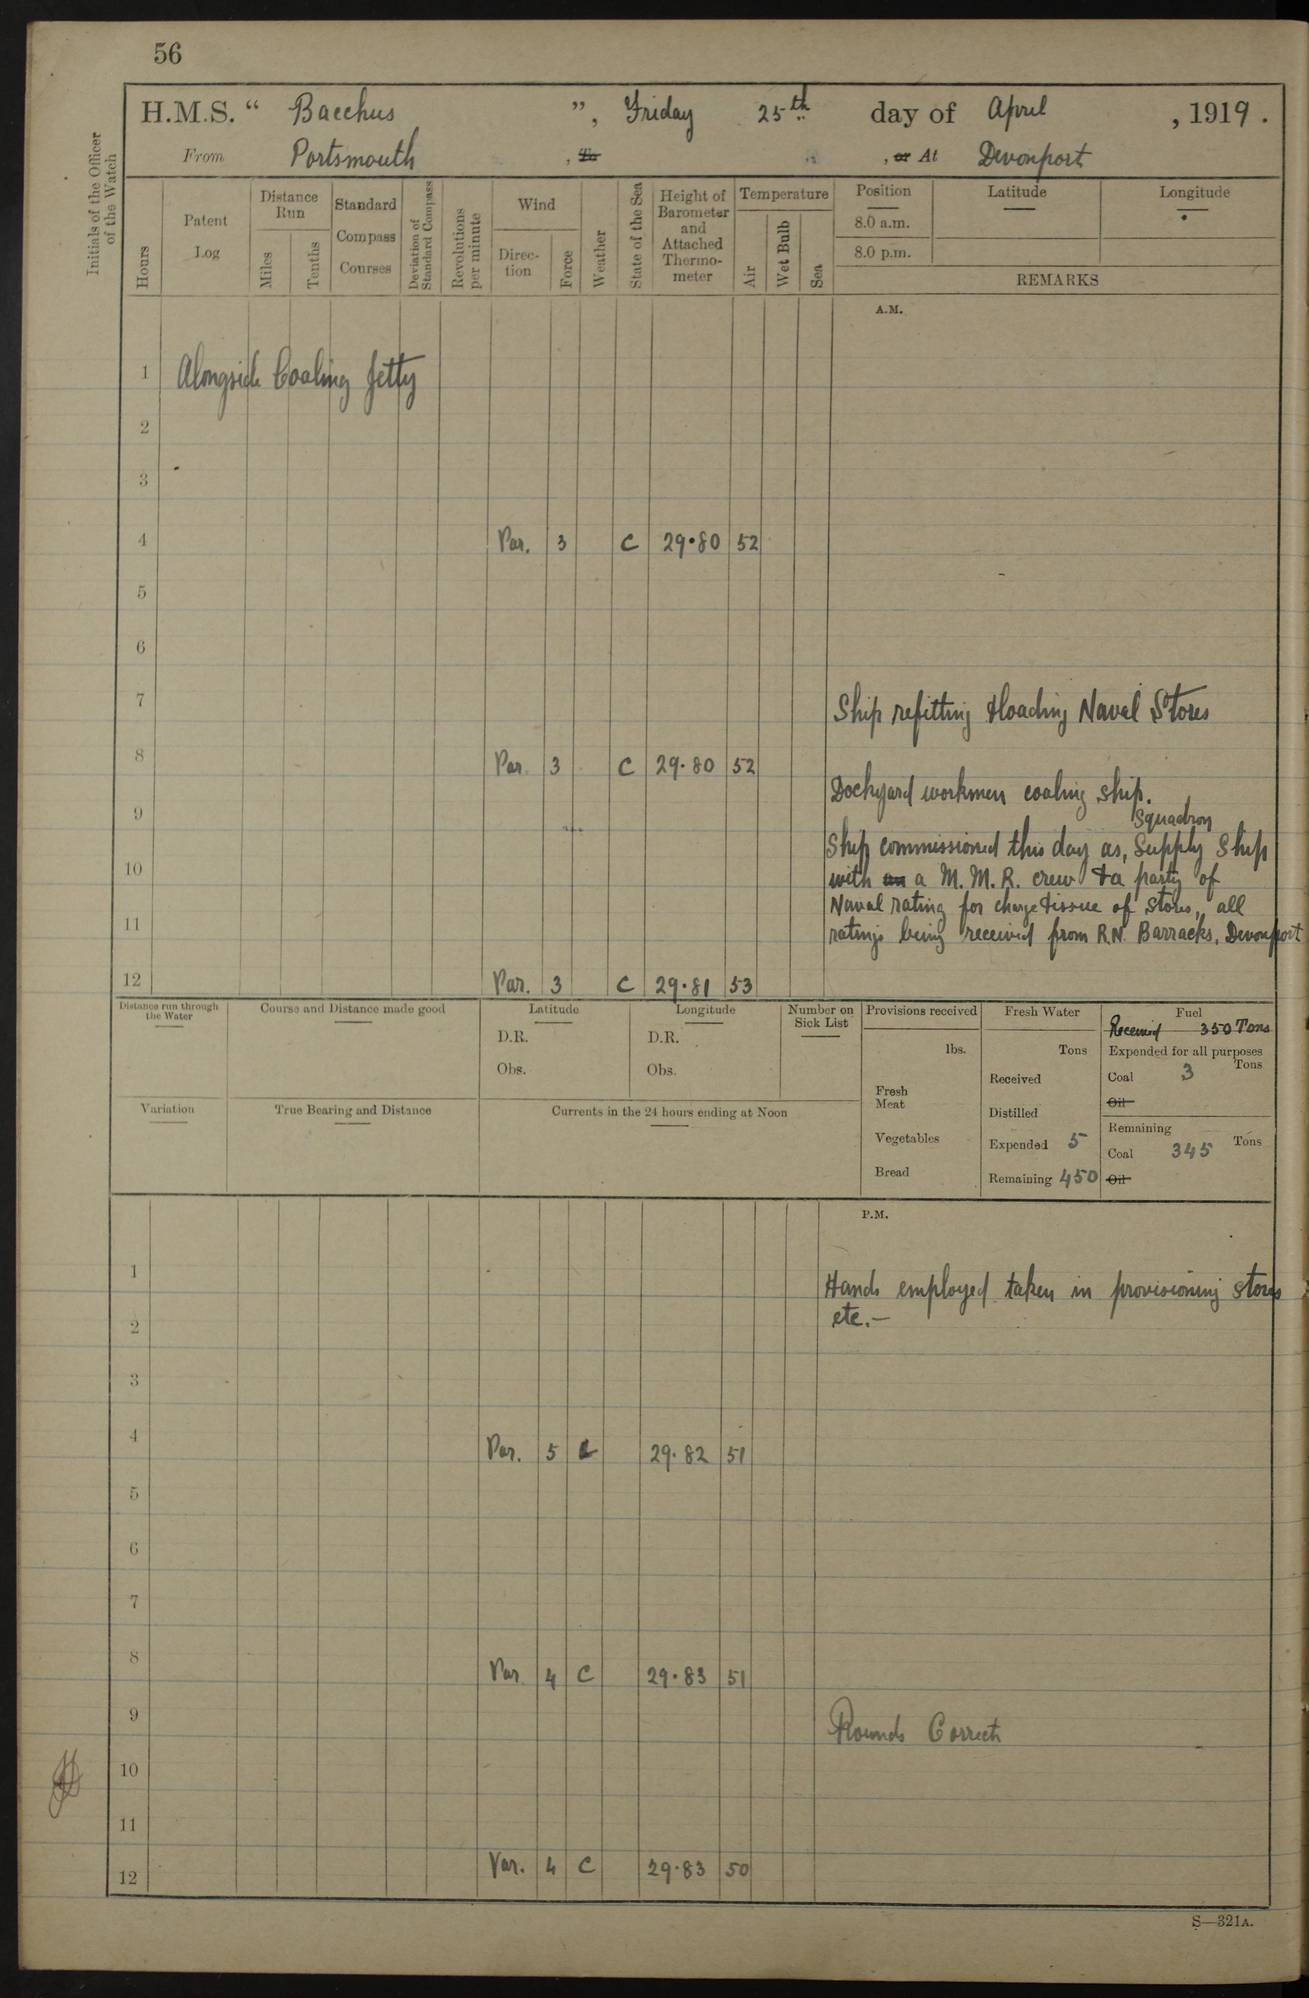 56
H.M.S. “ Bacchus ”, Friday 25th day of April , 1919 .
From Portsmouth , To , or At Devonport
Initials of the Officer of the Watch
Hours
Patent Log
Distance Run
Miles
Tenths
Standard Compass Courses
Deviation of Standard Compass
Revolutions per minute
Wind
Direction
Force
Weather
State of the Sea
Height of Barometer and Attached Thermometer
Temperature
Air
Wet Bulb
Sea
Position Latitude Longitude
8.0 a.m.
8.0 p.m.
REMARKS
A.M.
1 Alongside Coaling Jetty
2
3
4 Var. 3 C 29.80 52
5
6
7 Ship refitting & loading Naval Stores
8 Var. 3 C 29.80 52
Dockyard workmen coaling ship.
9
Squadron
Ship commissioned this day as, Supply Ship
10 with an a M.M.R. crew & a party of
Naval rating for charge & issue of stores, all
11 ratings being received from R.N. Barracks, Devonport
12 Var. 3 C 29.81 53
Distance run through the Water
Course and Distance made good
Latitude
D.R.
Obs.
Longitude
D.R.
Obs.
Number on Sick List
Provisions received
lbs.
Fresh Meat
Vegetables
Bread
Fresh Water
Tons
Received
Distilled
Expended 5
Remaining 450
Fuel
Received 350 Tons
Expended for all purposes
Tons
Coal 3
Oil
Remaining
Tons
Coal 345
Oil
Variation
True Bearing and Distance
Currents in the 24 hours ending at Noon
P.M.
1 Hands employed taken in provisioning stores
2 etc.—
3
4 Var. 5 C 29.82 51
5
6
7
8 Var. 4 C 29.83 51
9 Rounds Correct
10
11
12 Var. 4 C 29.83 50
S—321A.